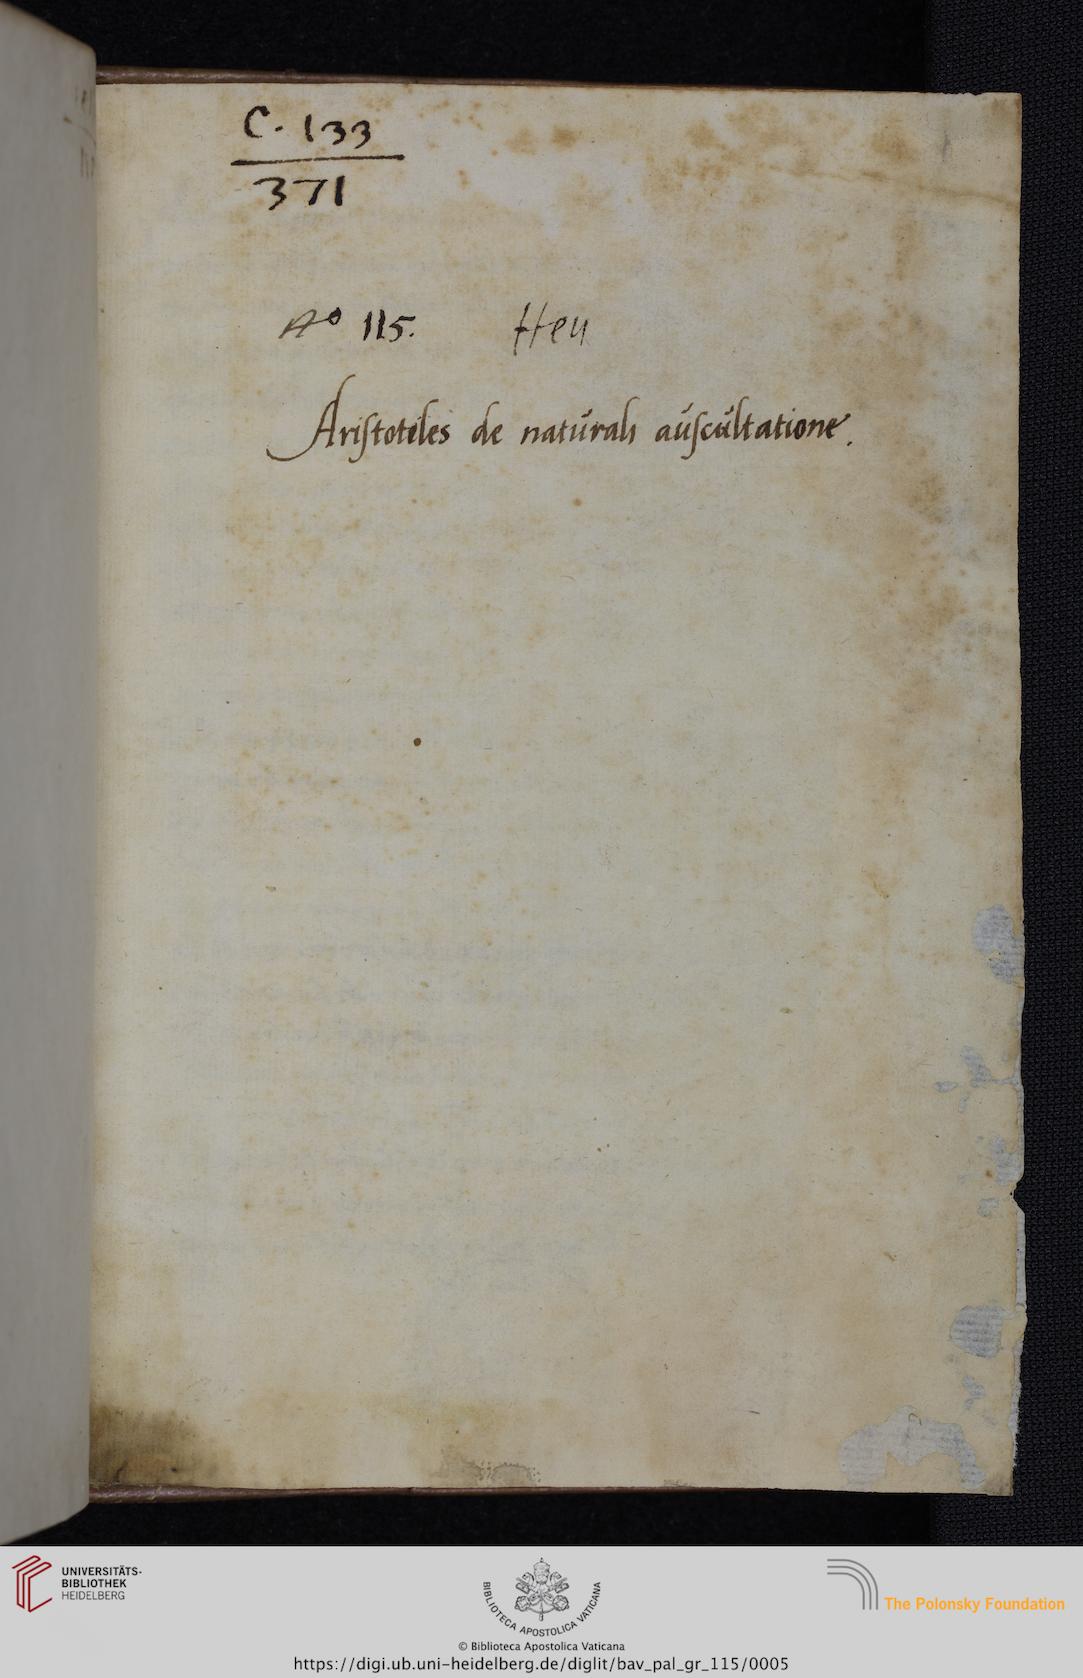 C. 133
371
No 115. Hen
Aristoteles de naturali auscultatione.
UNIVERSITÄTS-
BIBLIOTHEK
HEIDELBERG
BIBLIOTECA APOSTOLICA VATICANA
The Polonsky Foundation
© Biblioteca Apostolica Vaticana
https://digi.ub.uni-heidelberg.de/diglit/bav_pal_gr_115/0005